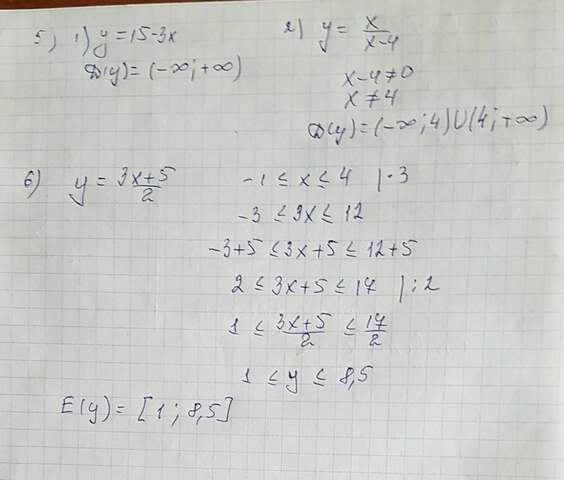 5) 1) y = 15-3x
D(y) = (-∞; +∞)
2) y = x/(x-4)
x-4≠0
x≠4
D(y) = (-∞; 4)∪(4; +∞)
6) y = (3x+5)/2
-1 ≤ x ≤ 4 |·3
-3 ≤ 3x ≤ 12
-3+5 ≤ 3x+5 ≤ 12+5
2 ≤ 3x+5 ≤ 17 |:2
1 ≤ (3x+5)/2 ≤ 17/2
1 ≤ y ≤ 8,5
E(y) = [1; 8,5]